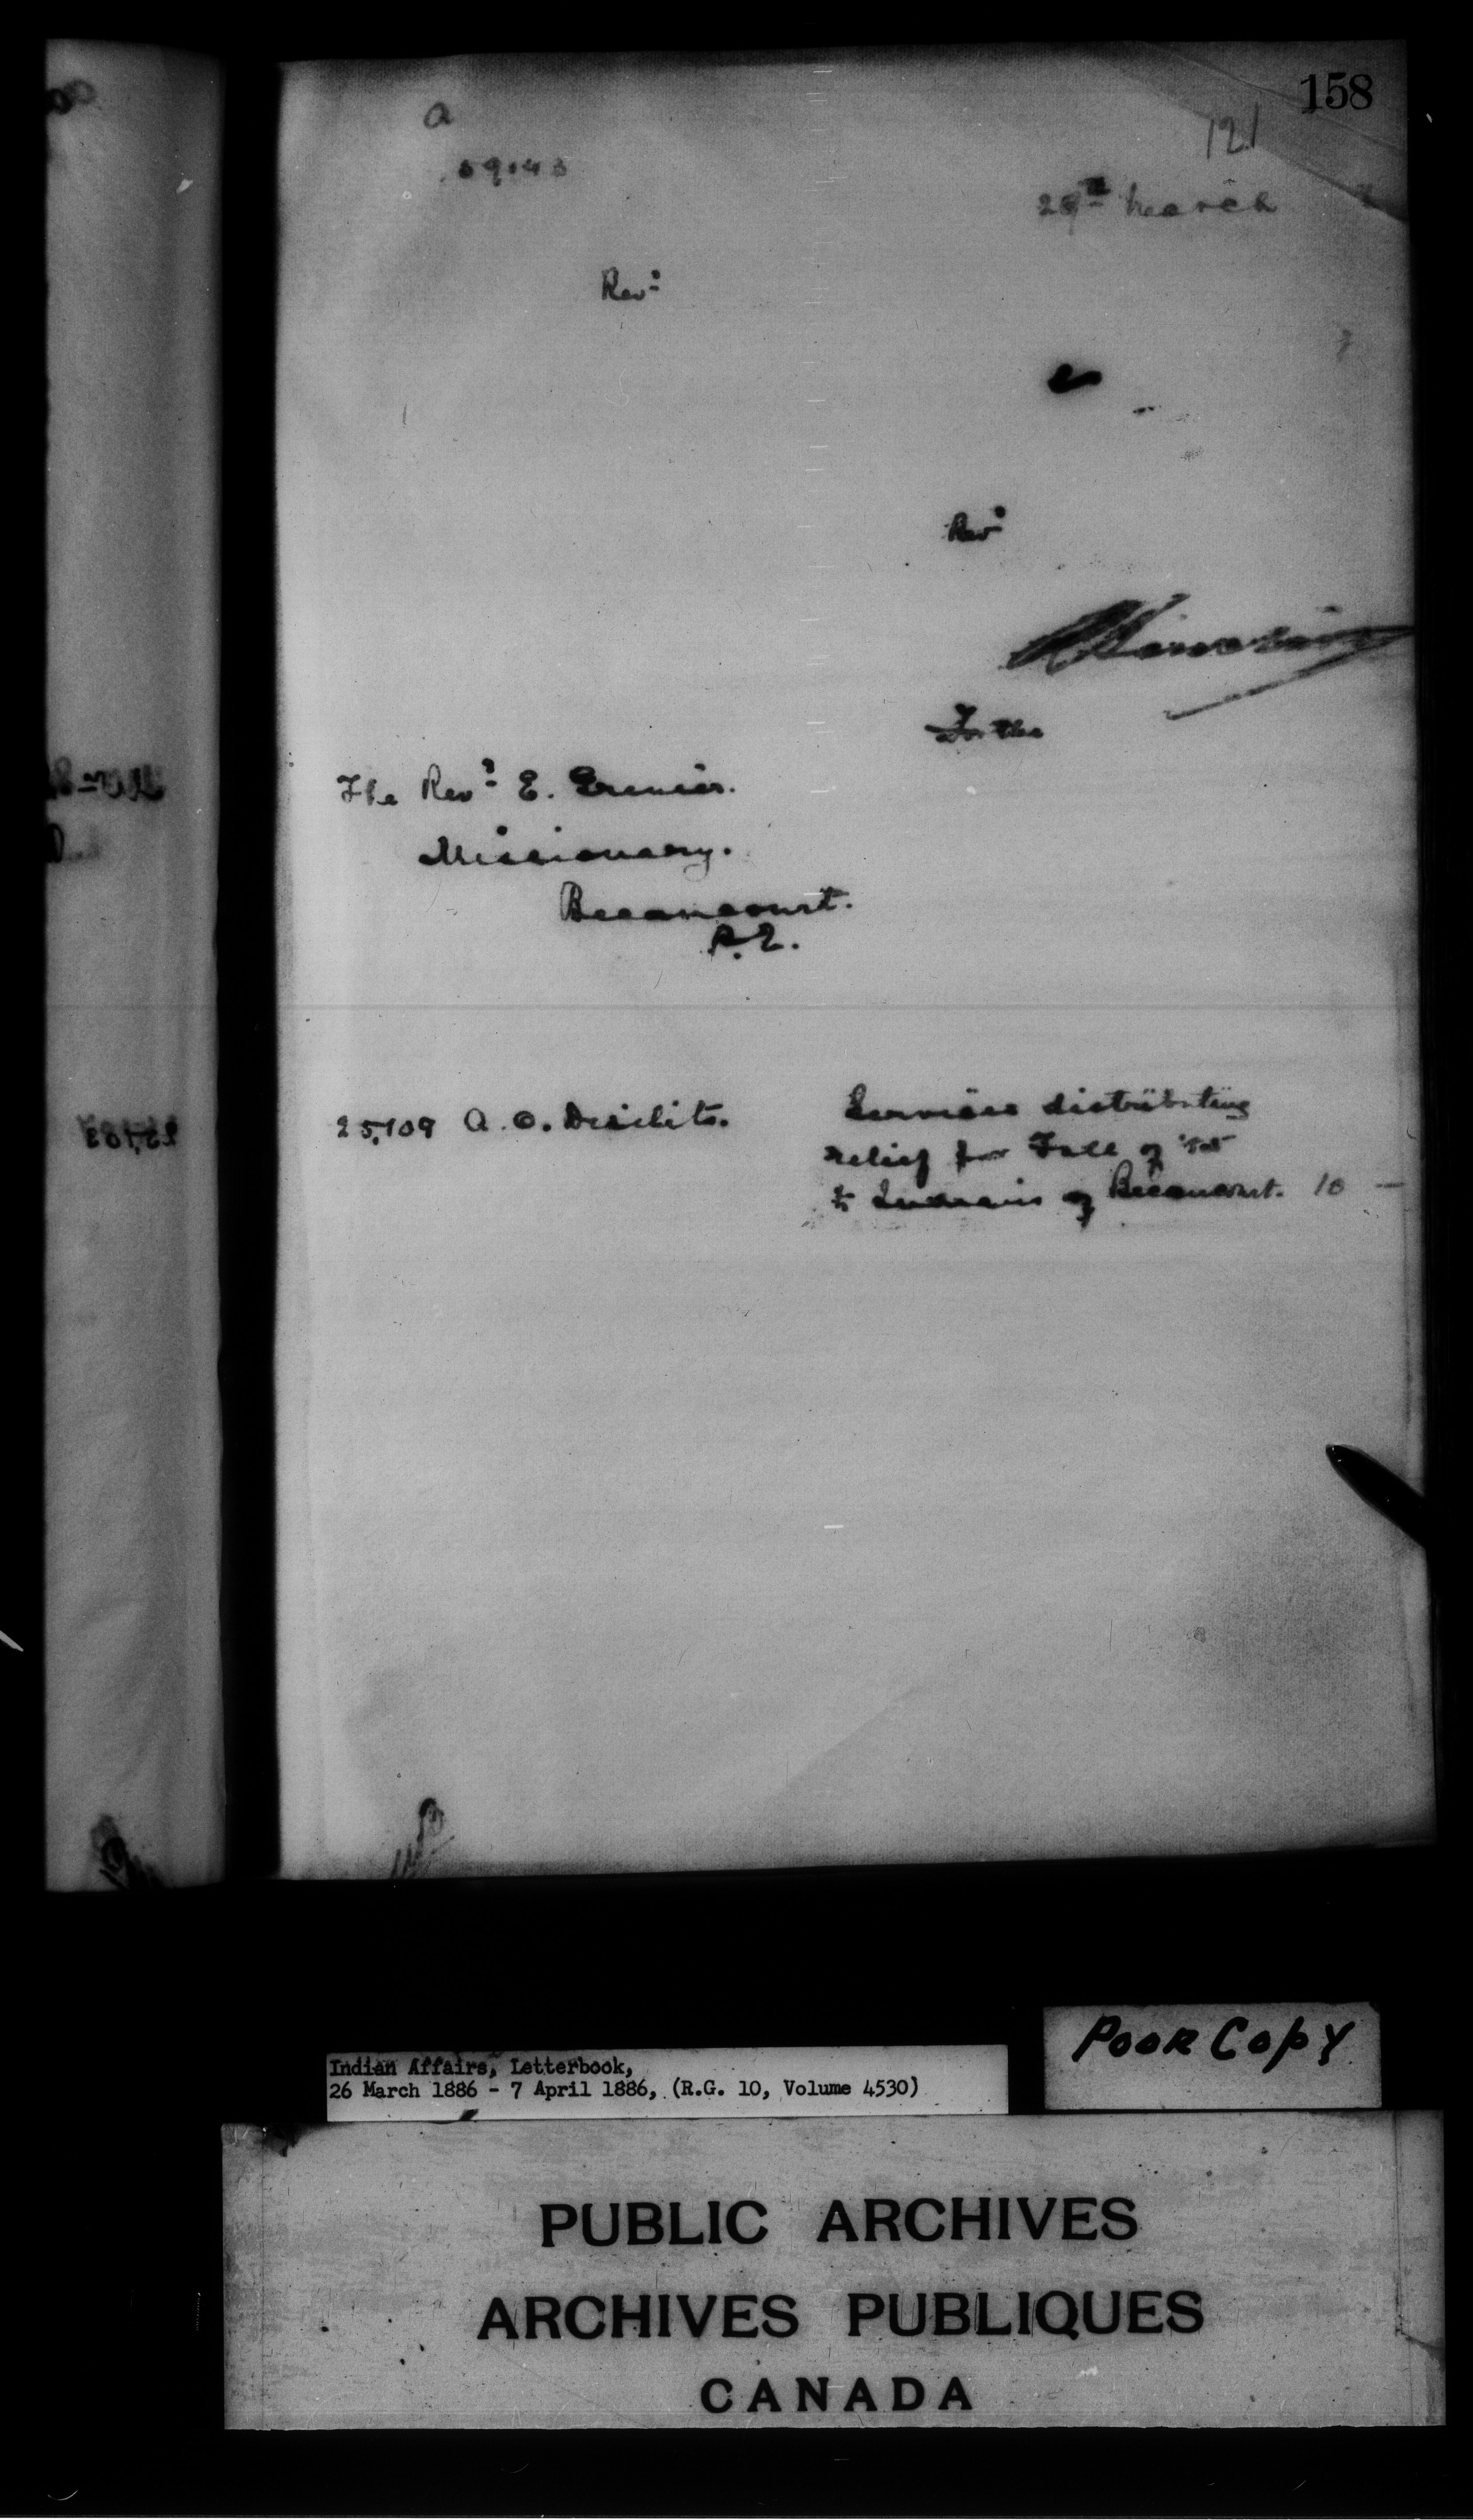 158
121
a
59143
29th March
Rev.d
Rev.d
For the
The Rev.d E. Grenier.
Missionary.
Becancourt.
P.Q.
25,109 A. O. Desilets. Services distributing
relief for Fall of '85
to Indians of Becancourt. 10 —
Indian Affairs, Letterbook,
26 March 1886 - 7 April 1886, (R.G. 10, Volume 4530)
POOR COPY
PUBLIC ARCHIVES
ARCHIVES PUBLIQUES
CANADA